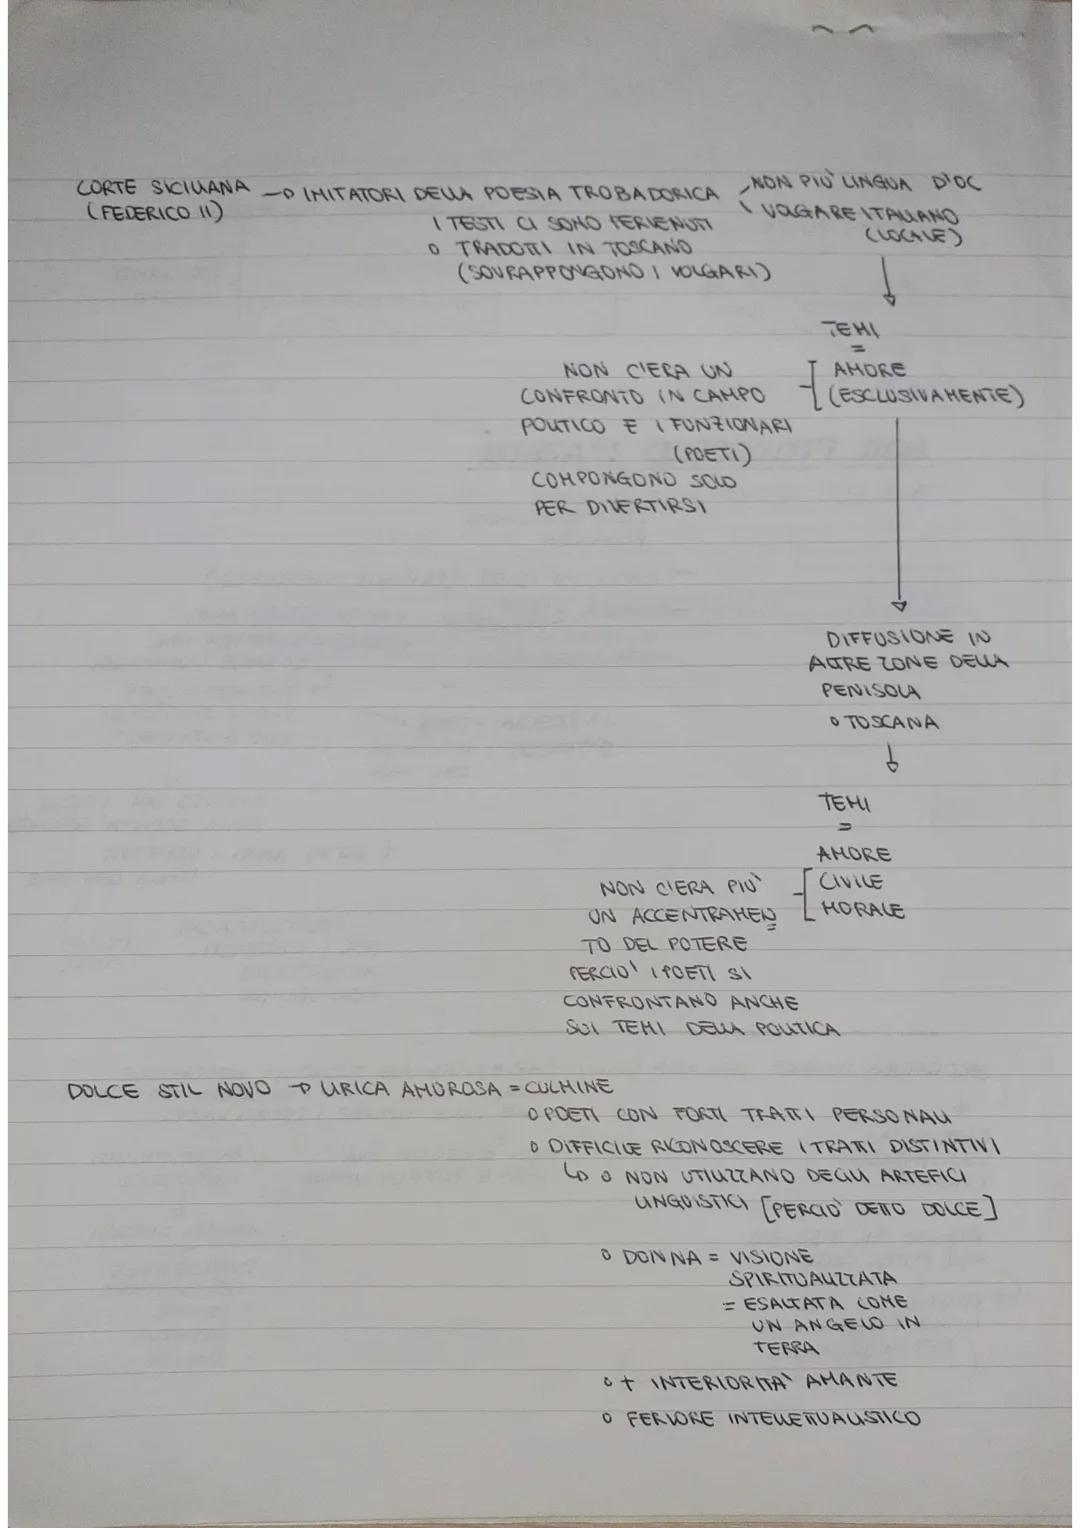 CORTE SICILIANA → IMITATORI DELLA POESIA TROBADORICA NON PIÙ LINGUA D'OC
(FEDERICO II) VOLGARE ITALIANO
(LOCALE)
I TESTI CI SONO PERVENUTI
TRADOTTI IN TOSCANO
(SOVRAPPONGONO I VOLGARI)
TEMI
=
AMORE
(ESCLUSIVAMENTE)
NON C'ERA UN
CONFRONTO IN CAMPO
POLITICO E I FUNZIONARI
(POETI)
COMPONGONO SOLO
PER DIVERTIRSI
DIFFUSIONE IN
ALTRE ZONE DELLA
PENISOLA
o TOSCANA
TEMI
=
AMORE
CIVILE
MORALE
NON C'ERA PIÙ
UN ACCENTRAMEN
TO DEL POTERE
PERCIO' I POETI SI
CONFRONTANO ANCHE
SUI TEMI DELLA POLITICA
DOLCE STIL NOVO → LIRICA AMOROSA = CULMINE
o POETI CON FORTI TRATTI PERSONALI
o DIFFICILE RICONOSCERE I TRATTI DISTINTIVI
↳ o NON UTILIZZANO DEGLI ARTEFICI
LINGUISTICI [PERCIO' DETTO DOLCE]
o DONNA = VISIONE
SPIRITUALIZZATA
= ESALTATA COME
UN ANGELO IN
TERRA
o + INTERIORITA' AMANTE
o FERVORE INTELLETTUALISTICO